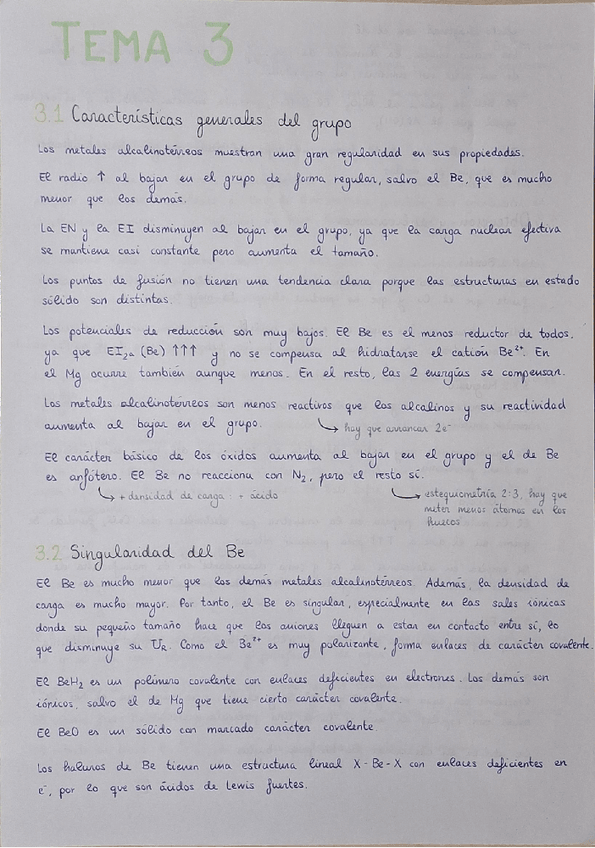 TEMA 3
3.1 Características generales del grupo
Los metales alcalinotérreos muestran una gran regularidad en sus propiedades.
El radio ↑ al bajar en el grupo de forma regular, salvo el Be, que es mucho
menor que los demás.
La EN y la EI disminuyen al bajar en el grupo, ya que la carga nuclear efectiva
se mantiene casi constante pero aumenta el tamaño.
Los puntos de fusión no tienen una tendencia clara porque las estructuras en estado
sólido son distintas.
Los potenciales de reducción son muy bajos. El Be es el menos reductor de todos,
ya que EI₂ₐ (Be) ↑↑↑ y no se compensa al hidratarse el catión Be²⁺. En
el Mg ocurre también aunque menos. En el resto, las 2 energías se compensan.
Los metales alcalinotérreos son menos reactivos que los alcalinos y su reactividad
aumenta al bajar en el grupo.
↳ hay que arrancar 2e⁻
El carácter básico de los óxidos aumenta al bajar en el grupo y el de Be
es anfótero. El Be no reacciona con N₂, pero el resto sí.
↳ + densidad de carga : + ácido
↳ estequiometría 2:3, hay que
meter menos átomos en los
huecos
3.2 Singularidad del Be
El Be es mucho menor que los demás metales alcalinotérreos. Además, la densidad de
carga es mucho mayor. Por tanto, el Be es singular, especialmente en las sales iónicas
donde su pequeño tamaño hace que los aniones lleguen a estar en contacto entre sí, lo
que disminuye su U_R. Como el Be²⁺ es muy polarizante, forma enlaces de carácter covalente.
El BeH₂ es un polímero covalente con enlaces deficientes en electrones. Los demás son
iónicos, salvo el de Mg que tiene cierto carácter covalente.
El BeO es un sólido con marcado carácter covalente
Los haluros de Be tienen una estructura lineal X-Be-X con enlaces deficientes en
e⁻, por lo que son ácidos de Lewis fuertes.